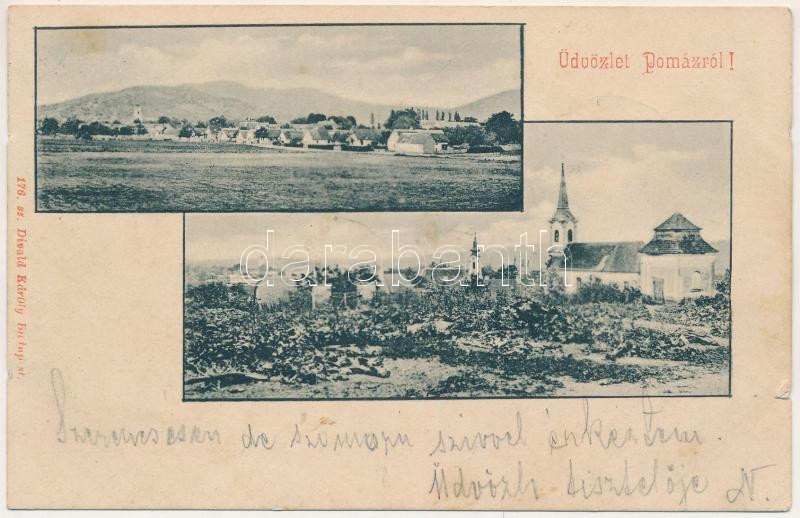 Üdvözlet Pomázról!
176. sz. Divald Károly Budapest.
darabanth
Szerencsésen de szomorú szivvel érkeztem.
Üdvözli tisztelője N.